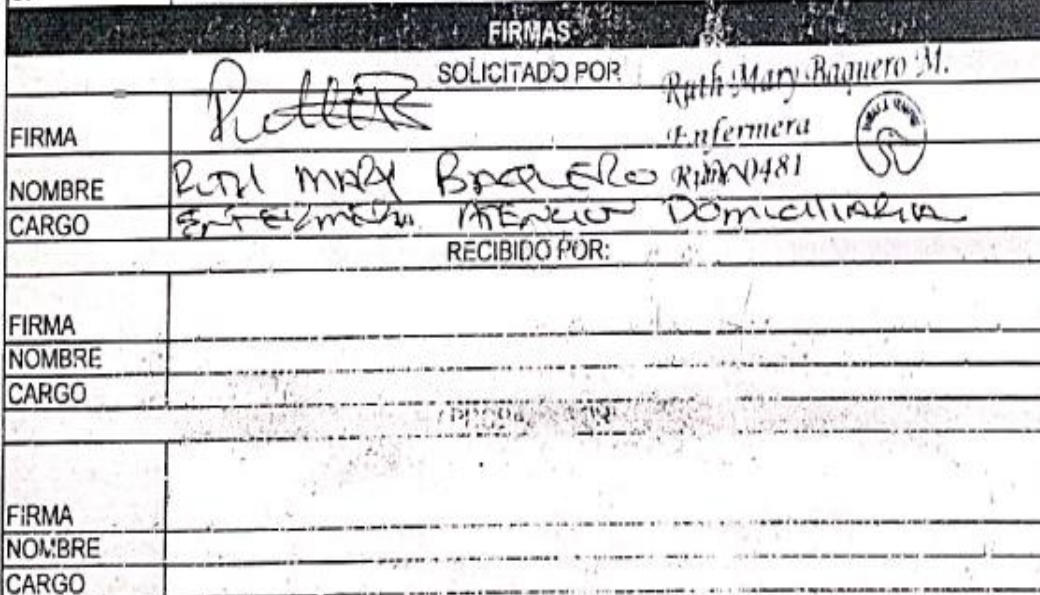 FIRMAS
SOLICITADO POR
Ruth Mary Baquero M.
Enfermera
FIRMA
NOMBRE RUTH MARY BAQUERO
CARGO ENFERMERA ATENCION DOMICILIARIA
RECIBIDO POR:
FIRMA
NOMBRE
CARGO
FIRMA
NOMBRE
CARGO